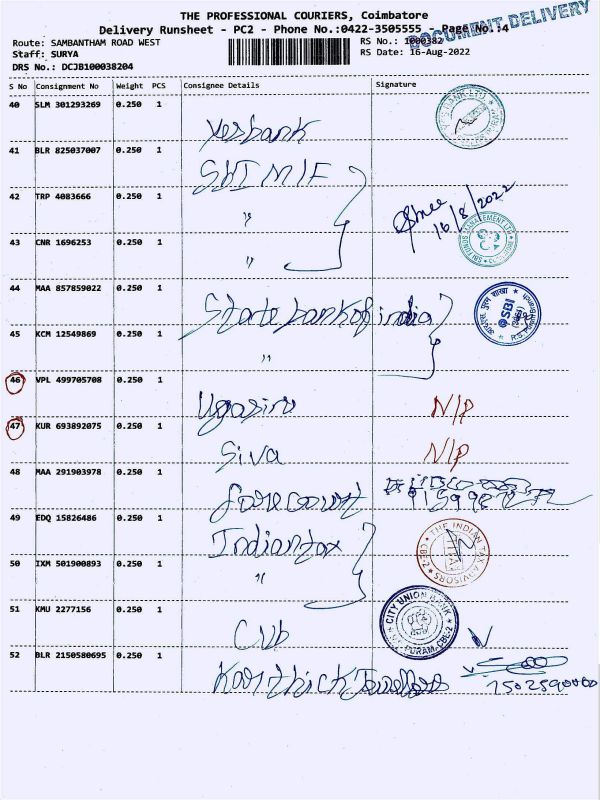 THE PROFESSIONAL COURIERS, Coimbatore
Delivery Runsheet - PC2 - Phone No.:0422-3505555 - Page No.:4
DOCUMENT DELIVERY
Route: SAMBANTHAM ROAD WEST
RS No.: 1000382
Staff: SURYA
RS Date: 16-Aug-2022
DRS No.: DCJB100038204
S No Consignment No Weight PCS Consignee Details Signature
40 SLM 301293269 0.250 1
Yesbank
41 BLR 825037007 0.250 1
SBI MF
42 TRP 4083666 0.250 1
"
16/8/2022
43 CNR 1696253 0.250 1
"
SBI FUNDS MANAGEMENT LTD
44 MAA 857859022 0.250 1
State bank of india
SBI
45 KCM 12549869 0.250 1
"
46 VPL 499705708 0.250 1
N/P
47 KUR 693892075 0.250 1
Siva N/P
48 MAA 291903978 0.250 1
forecourt
49 EDQ 15826486 0.250 1
Indiantax
THE INDIAN TAX ADVISORS
CBE-2
50 IXM 501900893 0.250 1
"
51 KMU 2277156 0.250 1
CUB
CITY UNION BANK
PURAM, CBE-2
52 BLR 2150580695 0.250 1
Karthick Jewellers